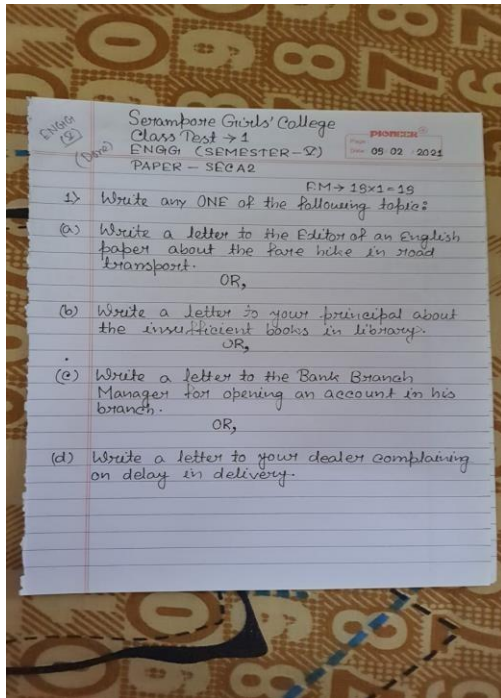 Serampore Girls' College
Class Test → 1
ENGG (SEMESTER-V)
PAPER - SEC A2
ENGG
(V)
(Done)
PIONEER
Page
Date 05 02 2021
F.M → 15×1=15
1) Write any ONE of the following topic:
(a) Write a letter to the Editor of an English
paper about the fare hike in road
transport.
OR,
(b) Write a letter to your principal about
the insufficient books in library.
OR,
(c) Write a letter to the Bank Branch
Manager for opening an account in his
branch.
OR,
(d) Write a letter to your dealer complaining
on delay in delivery.